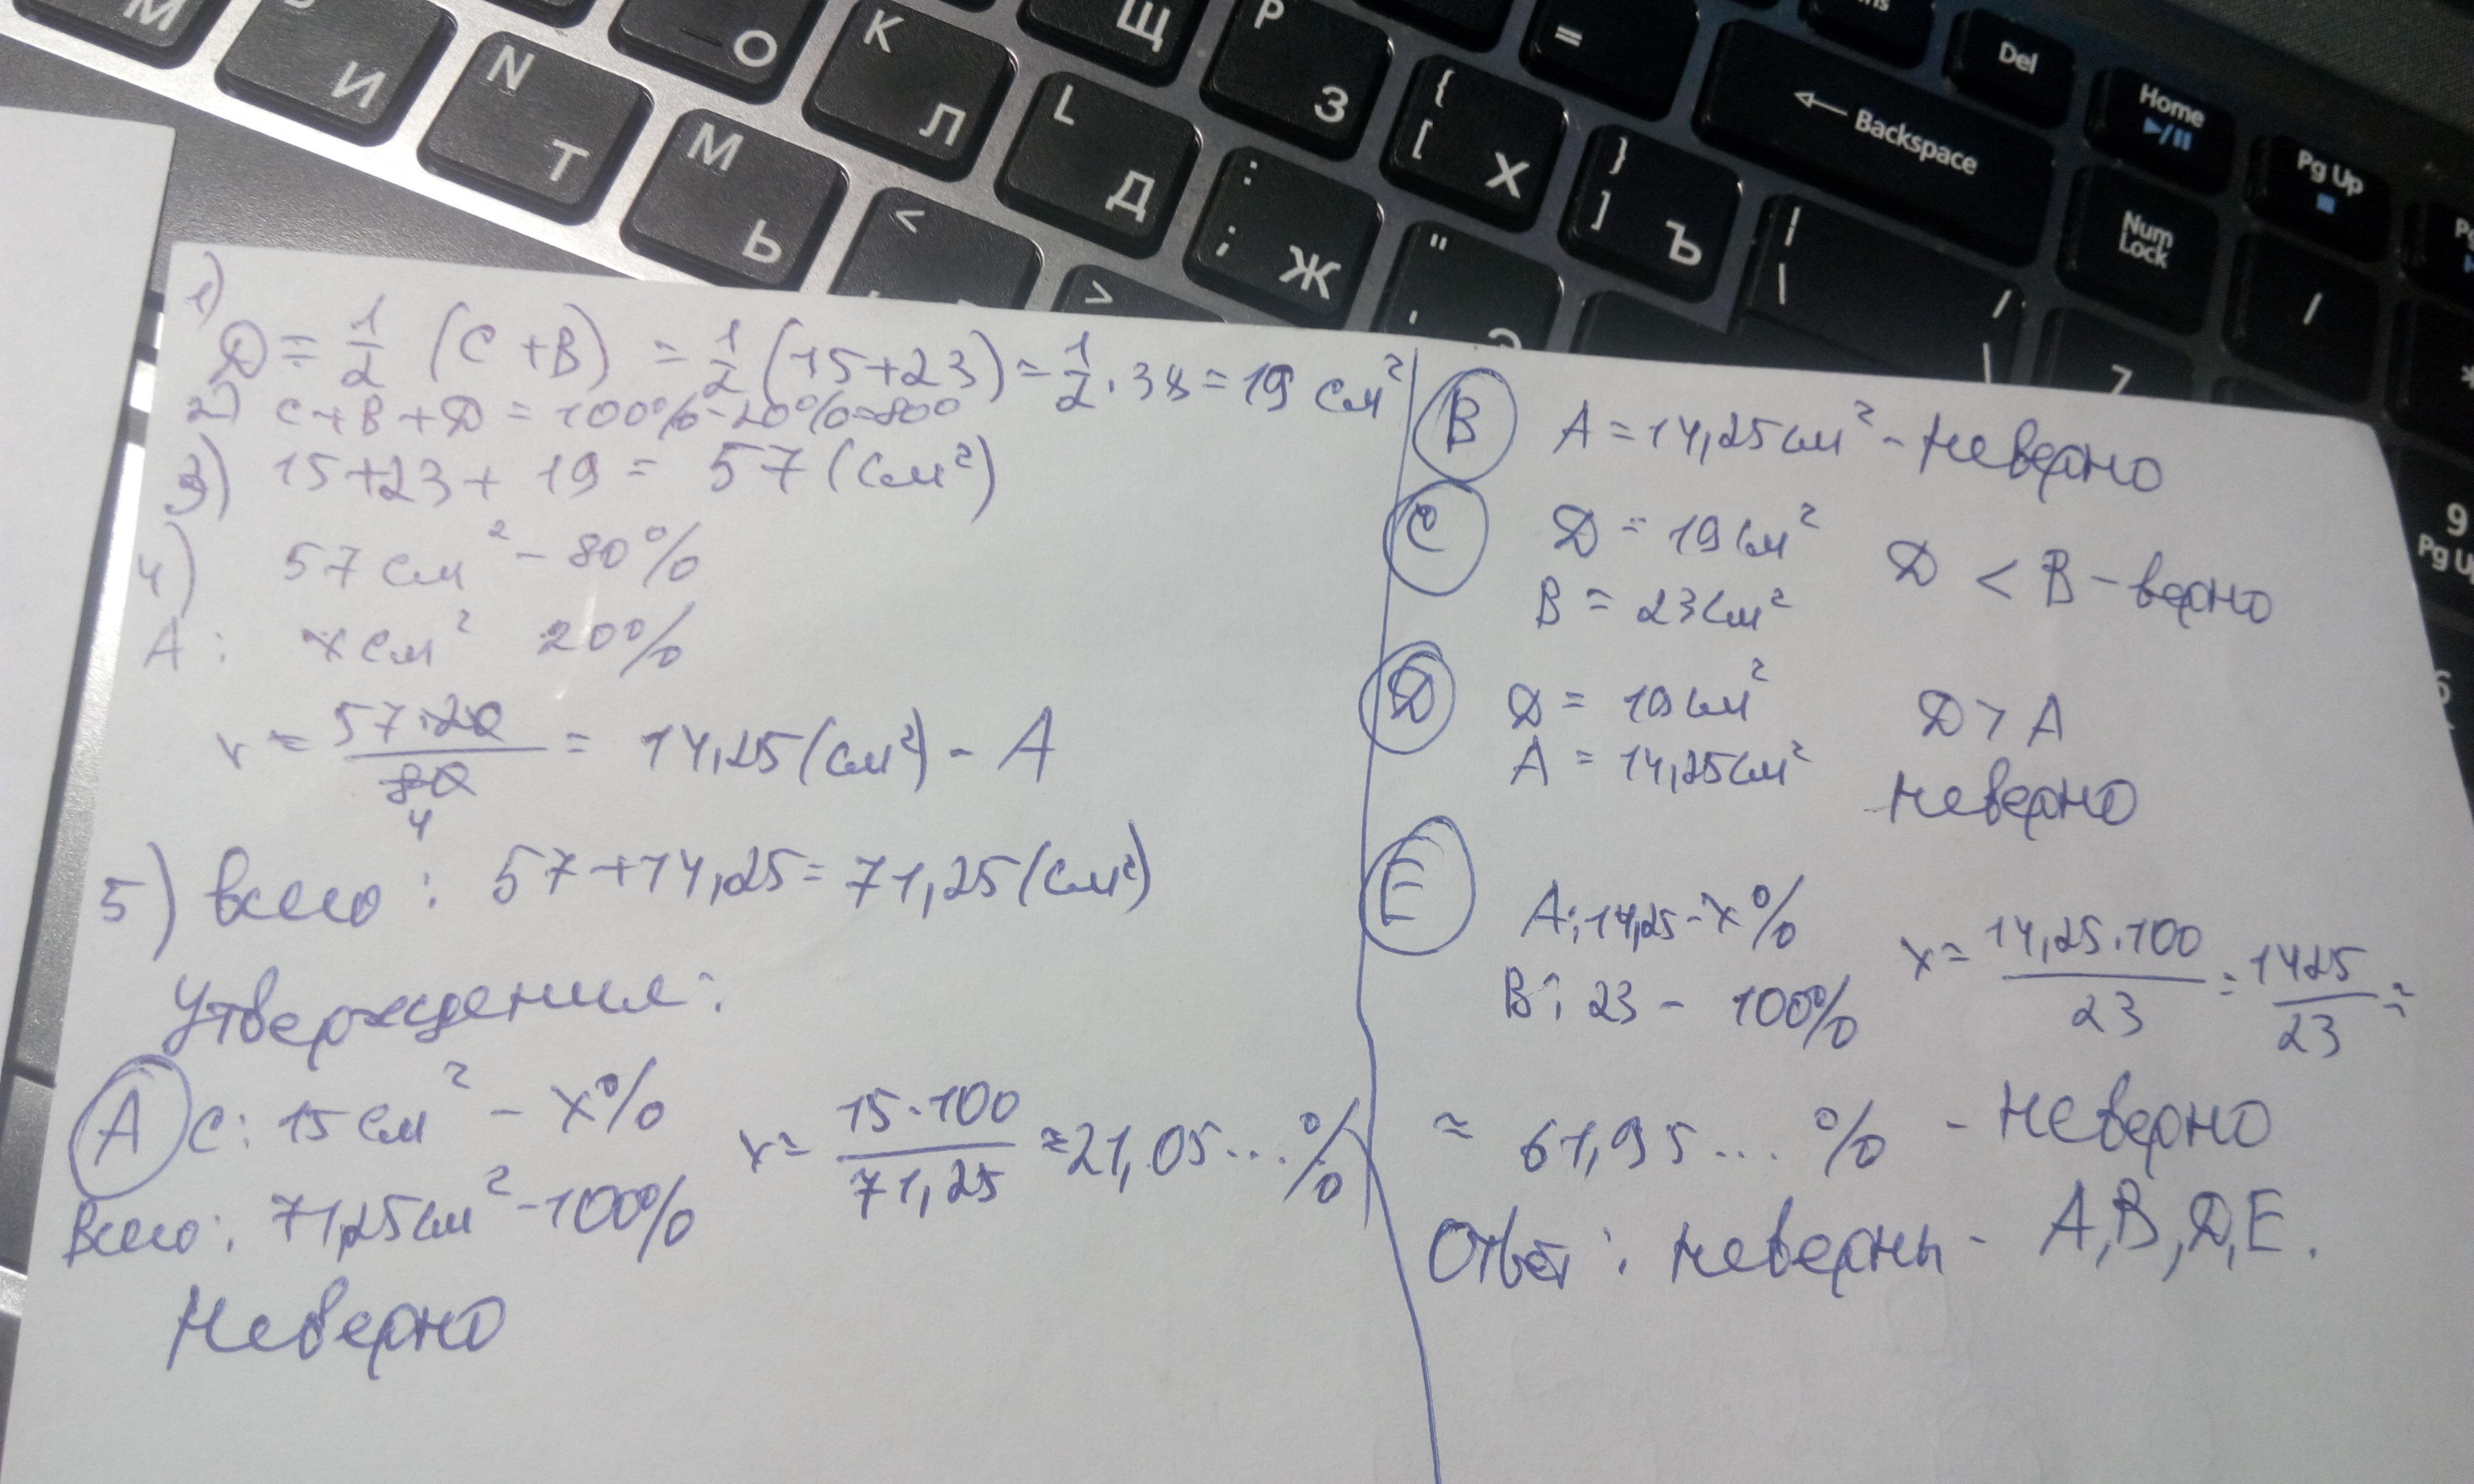 M
И
N
Т
O
M
Ь
К
Л
<
Щ
L
Д
>
P
З
:
;
Ж
{
[
Х
"
'
Э
=
}
]
Ъ
← Backspace
|
\
/
Del
Home
Num Lock
Pg Up
/
7
*
9
Pg U
6
1)
D = 1/2 (C + B) = 1/2 (15+23) = 1/2 · 38 = 19 см²
2) C + B + D = 100% - 20% = 800
3) 15+23+ 19 = 57 (см²)
4) 57 см² - 80%
A: x см² 20%
x = 57·20/80 4 = 14,25 (см²) - A
5) Всего: 57+14,25 = 71,25 (см²)
Утверждения:
A C: 15 см² - x% x = 15·100/71,25 ≈ 21,05...%
Всего: 71,25 см² - 100%
Неверно
B A = 14,25 см² - неверно
C D = 19 см² D < B - верно
B = 23 см²
D D = 19 см² D > A
A = 14,25 см² неверно
E A: 14,25 - x% x = 14,25·100/23 = 1425/23 ≈
B: 23 - 100%
≈ 61,95... % - неверно
Ответ: неверны - A, B, D, E.